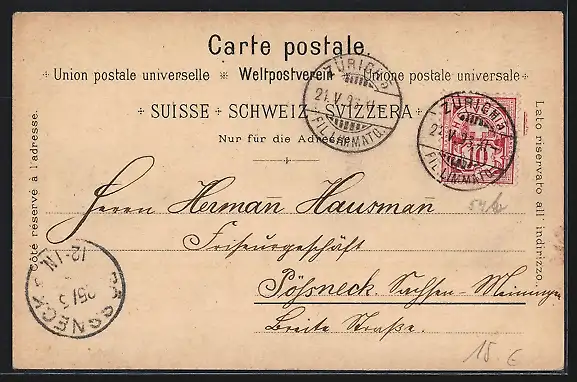 Carte postale.
Union postale universelle ⁕ Weltpostverein Unione postale universale
SUISSE SCHWEIZ SVIZZERA
Nur für die Adresse.
Côté réservé à l'adresse.
Lato riservato all' indirizzo.
ZÜRICH
21.V.
FIL. LIMMATQ.
ZÜRICH
FIL. LIMMATQ.
10
Herrn Herman Hausman
Friseurgeschäft
Pößneck Sachsen-Meiningen
Breite Straße.
POESSNECK
12-1N.
25/5
15 €